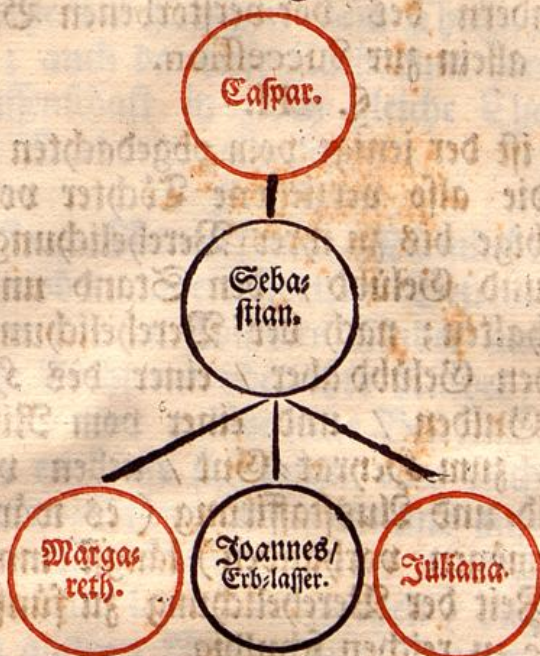 Caſpar.
Seba⸗
ſtian.
Marga⸗
reth.
Joannes/
Erb⸗laſſer.
Juliana.